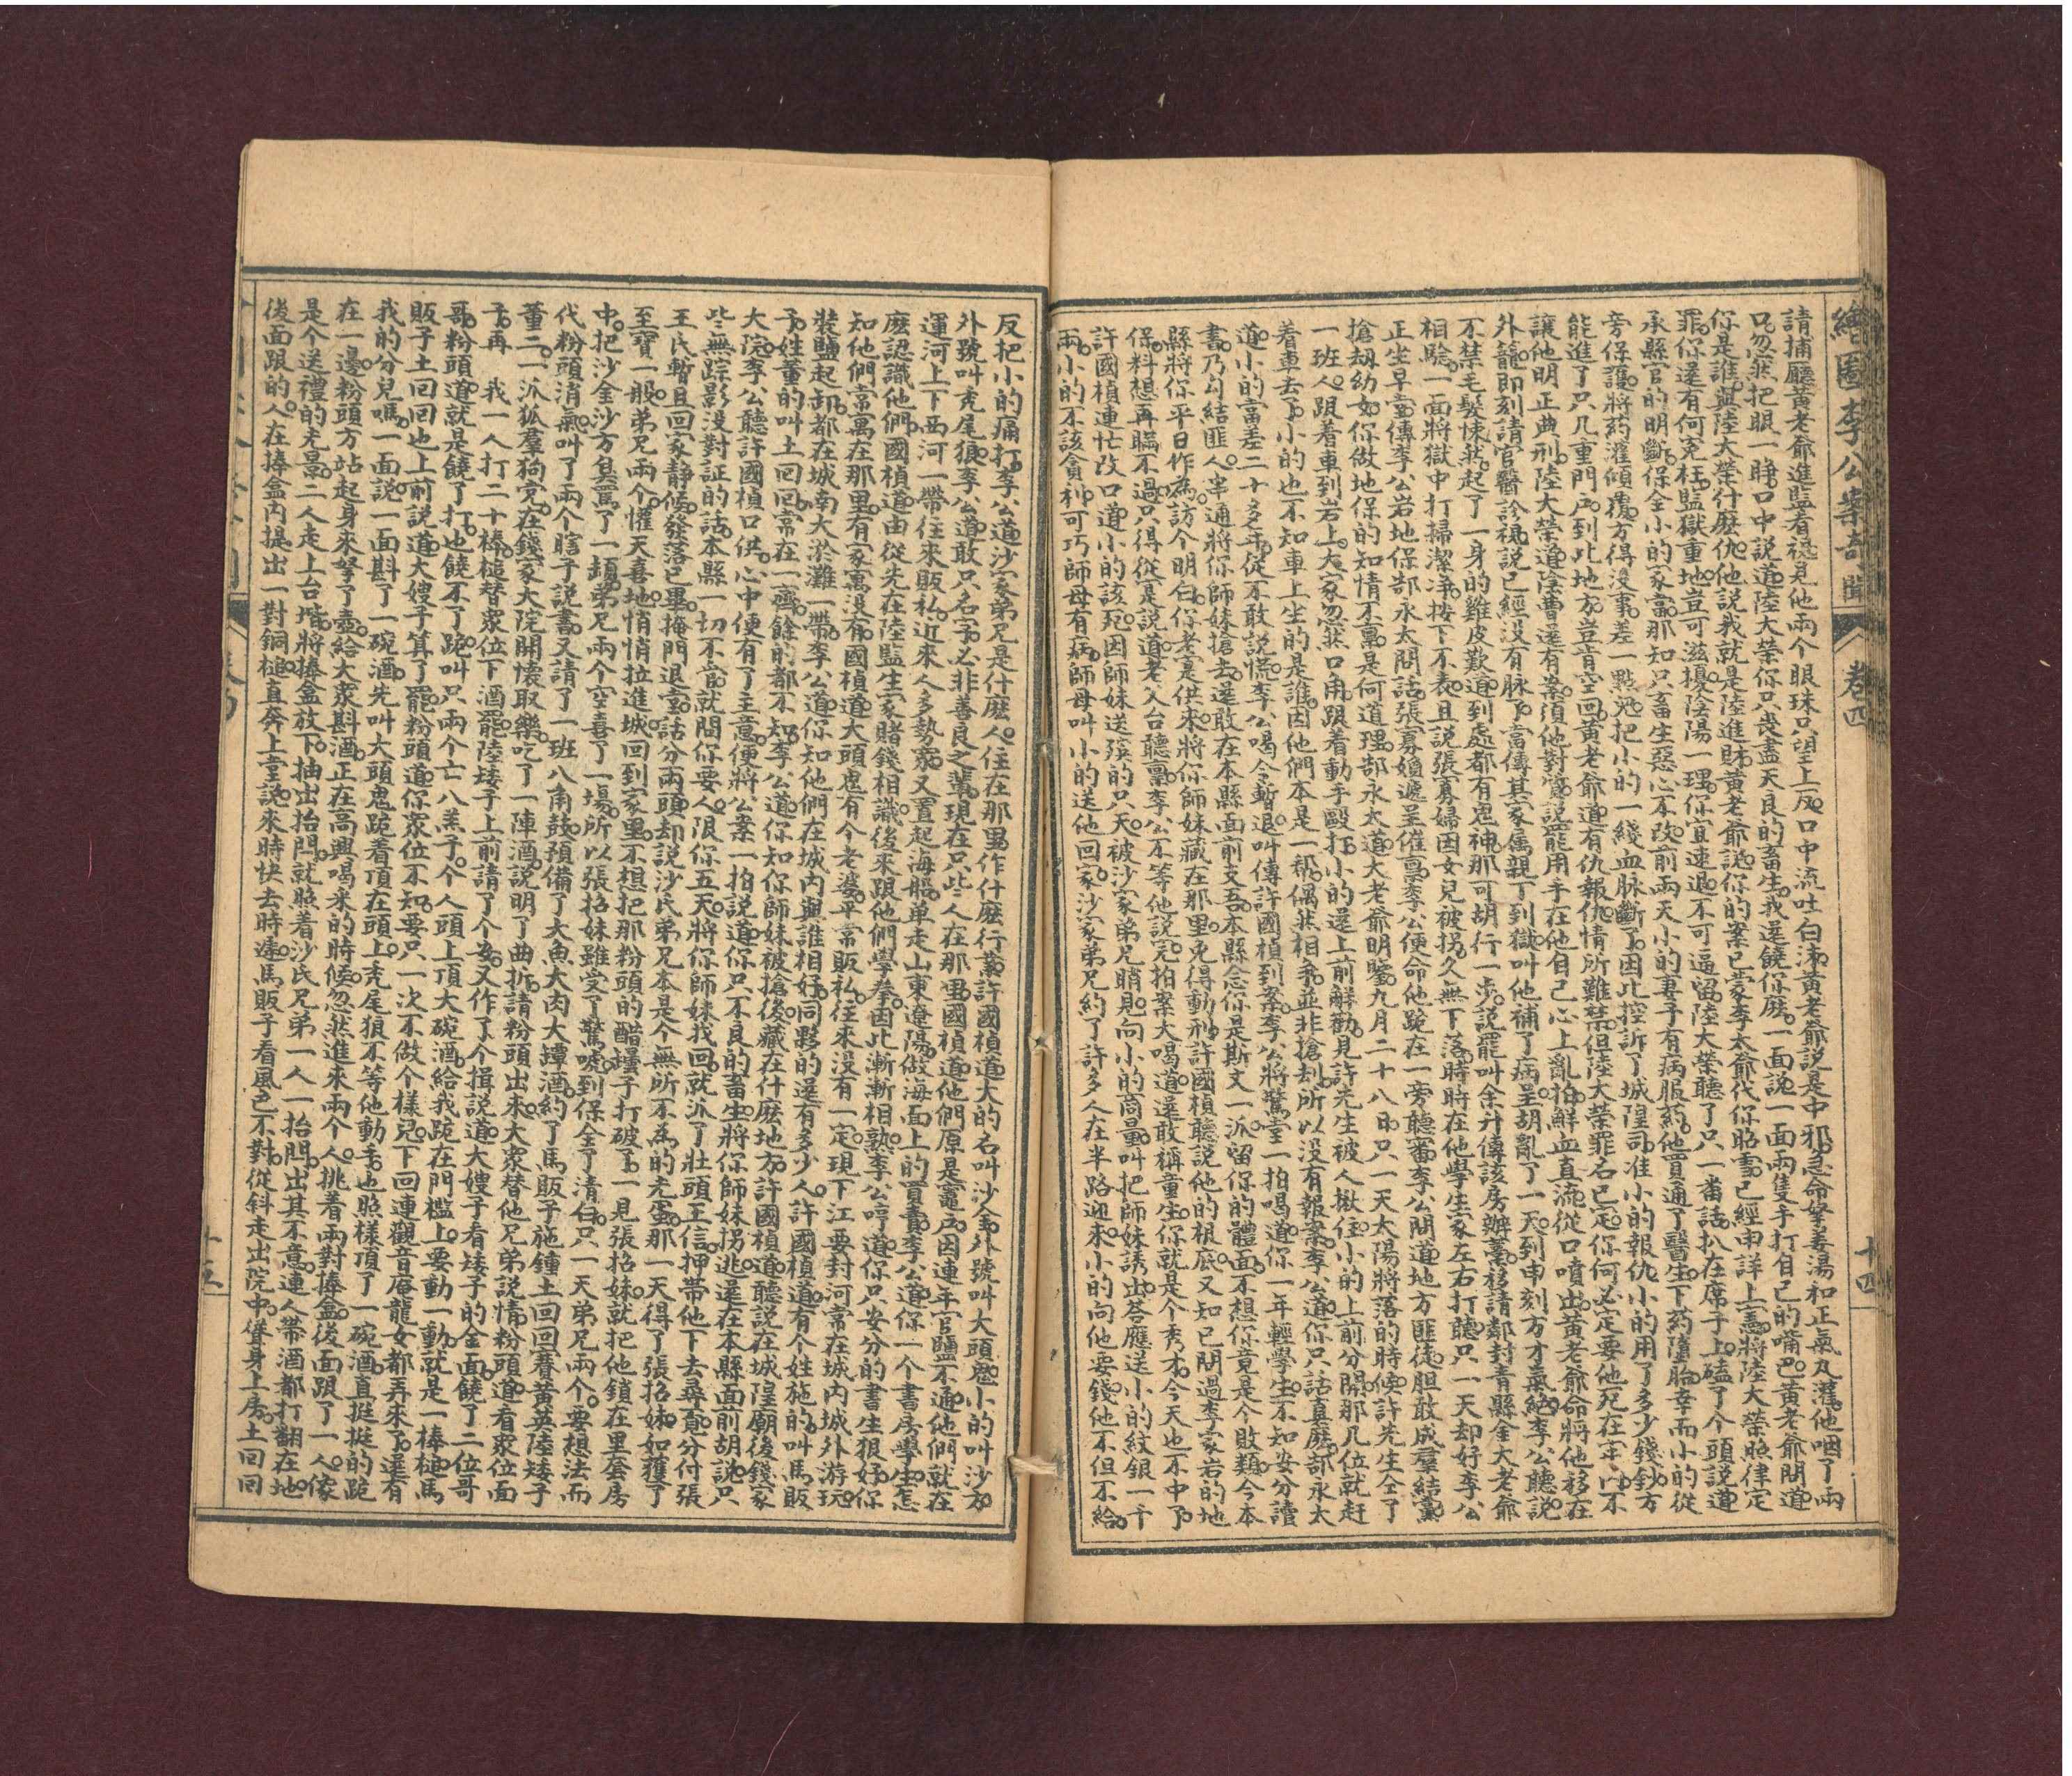 繪圖李公案奇聞 卷四 十四
請捕廳黃老爺進監看視見他兩个眼珠只望上反口中流吐白沫黃老爺說是中邪急命拏姜湯和正氣丸灌他咽了兩
口忽然把眼一睜口中說道陸大榮你只喪盡天良的畜生我還饒你麽一面說一面兩隻手打自己的嘴巴黃老爺問道
你是誰與陸大榮什麽仇他說我就是陸進財黃老爺說你的案已蒙李太爺代你昭雪已經申詳上憲將陸大榮照律定
罪你還有何寃枉監獄重地豈可滋擾陰陽一理你宜速退不可逼留陸大榮聽了只一番話扒在席子上磕了个頭說道
承縣官的明斷保全小的家富那知只畜生惡心不改前兩天小的妻子有病服藥他買通了醫生下葯墮胎幸而小的從
旁保護將葯灌傾覆方得沒事差一點兒把小的一綫血脉斷了因此控訴了城隍司准小的報仇小的用了多少錢鈔方
能進了只几重門戶到此地方豈肯空回黃老爺道有仇報仇情所難禁但陸大榮罪名已定你何必定要他死在牢不
讓他明正典刑陸大榮道陰曹還有案須他對鸞說罷用手在他自己心上亂拍鮮血直流從口噴出黃老爺命將他移在
外籠即刻請官醫診視說已經沒有脉了當傳其家属親丁到獄叫他補了病呈胡亂了一天到申刻方才氣絕李公聽說
不禁毛髮悚然起了一身的雞皮歎道到處都有鬼神那可胡行一步說罷叫余升傳該房辦藁移請鄰封青縣金大老爺
相騐一面將獄中打掃潔凈按下不表且說張寡婦因女兒被拐久無下落時時在他學生家左右打聽只一天却好李公
正坐早堂傳李公岩地保郜永太問話張寡婦遞呈催禀李公便命他跪在一旁聽審李公問道地方匪徒胆敢成羣結黨
搶刼幼女你做地保的知情不禀是何道理郜永太道大老爺明鑒九月二十八日只一天太陽將落的時候許先生仝了
一班人跟着車到岩上大家忽然口角跟着動手毆打小的還上前解勸見許先生被人揪住小的上前分開那几位就赶
着車去了小的也不知車上坐的是誰因他們本是一帮偶然相爭並非搶刼所以沒有報案李公道你只話真麽郜永太
道小的當差二十多年從不敢說慌李公喝令暫退叫傳許國楨到案李公將驚堂一拍喝道你一年輕學生不知安分讀
書乃勾結匪人串通將你師妹搶去還敢在本縣面前支吾本縣念你是斯文一派留你的體面不想你竟是个敗類今本
縣將你平日作為訪个明白你老實供來將你師妹藏在那里免得動刑許國楨聽說他的根底又知已問過李家岩的地
保料想再瞞不過只得從實說道老父台聽禀李公不等他說完拍案大喝道還敢稱童生你就是个秀才今天也不中了
許國楨連忙改口道小的該死因師妹送殯的只天被沙家弟兄瞧見向小的商量叫把師妹誘出答應送小的紋銀一千
兩小的不該貪利可巧師母有病師母叫小的送他回家沙家弟兄約了許多人在半路迎來小的向他要錢他不但不給
反把小的痛打李公道沙家弟兄是什麽人住在那里作什麽行業許國楨道大的名叫沙金外號叫大頭鬼小的叫沙方
外號叫禿尾狼李公道敢只名字必非善良之輩現在只些人在那里國楨道他們原是竈戶因連年官鹽不通他們就在
運河上下西河一帶往來販私近來人多勢衆又置起海船單走山東遼陽做海面上的買賣李公道你一个書房學生怎
麽認識他們國楨道由從先在陸監生家賭錢相識後來跟他們學拳因此漸漸相熟李公哼道你只安分的書生狠好你
知他們常寓在那里有家寓沒有國楨道大頭鬼有个老婆平常販私往來沒有一定現下江要封河常在城內城外游玩
裝鹽起卸都在城南大淤灘一帶李公道你知他們在城內與誰相好同夥的還有多少人許國楨道有个姓施的叫馬販
子姓董的叫土回回常在一齊餘的都不知李公道你知你師妹被搶後藏在什麽地方許國楨道聽說在城隍廟後錢家
大院李公聽許國楨口供心中便有了主意便將公案一拍說道你只不良的畜生將你師妹拐逃還在本縣面前胡說只
些無踪影沒對証的話本縣一切不管就問你要人限你五天將你師妹找回就派了壯頭王信押帶他下去尋覔分付張
王氏暫且回家静候發落已畢掩門退堂話分兩頭却說沙氏弟兄本是个無所不為的光蛋那一天得了張招妹如獲了
至寶一般弟兄兩个懽天喜地悄悄拉進城回到家里不想把那粉頭的醋罎子打破了一見張招妹就把他鎖在里套房
中把沙金沙方臭罵了一頓弟兄兩个空喜了一塲所以張招妹雖受了驚唬到保全了清白只一天弟兄兩个要想法而
代粉頭消氣叫了兩个瞎子說書又請了一班八角鼓預備了大魚大肉大罈酒約了馬販子施鍾土回回賽黃英陸矮子
董二一派狐羣狗党在錢家大院開懷取樂吃了一陣酒說明了曲折請粉頭出來大衆替他兄弟說情粉頭道看衆位面
子再 我一人打二十棒槌替衆位下酒罷陸矮子上前請了个安又作了个揖說道大嫂子看矮子的金面饒了二位哥
哥粉頭道就是饒了打也饒不了跪叫只兩个亡八羔子个人頭上頂大碗酒給我跪在門檻上要動一動就是一棒槌馬
販子土回回也上前說道大嫂子算了罷粉頭道你衆位不知要只一次不做个樣兒下回連觀音庵龍女都弄來了還有
我的分兒嗎一面說一面斟了一碗酒先叫大頭鬼跪着頂在頭上禿尾狼不等他動手也照樣頂了一碗酒直挺挺的跪
在一邊粉頭方站起身來拏了壶給大衆斟酒正在高興喝釆的時候忽然進來兩个人挑着兩對捧盒後面跟了一人傢
是个送禮的光景二人走上台堦將捧盒放下抽出抬閂就照着沙氏兄弟一人一抬閂出其不意連人帶酒都打翻在地
後面跟的人在捧盒內提出一對銅槌直奔上堂說來時快去時遠馬販子看風色不對從斜走出院中聳身上房土回回
十五